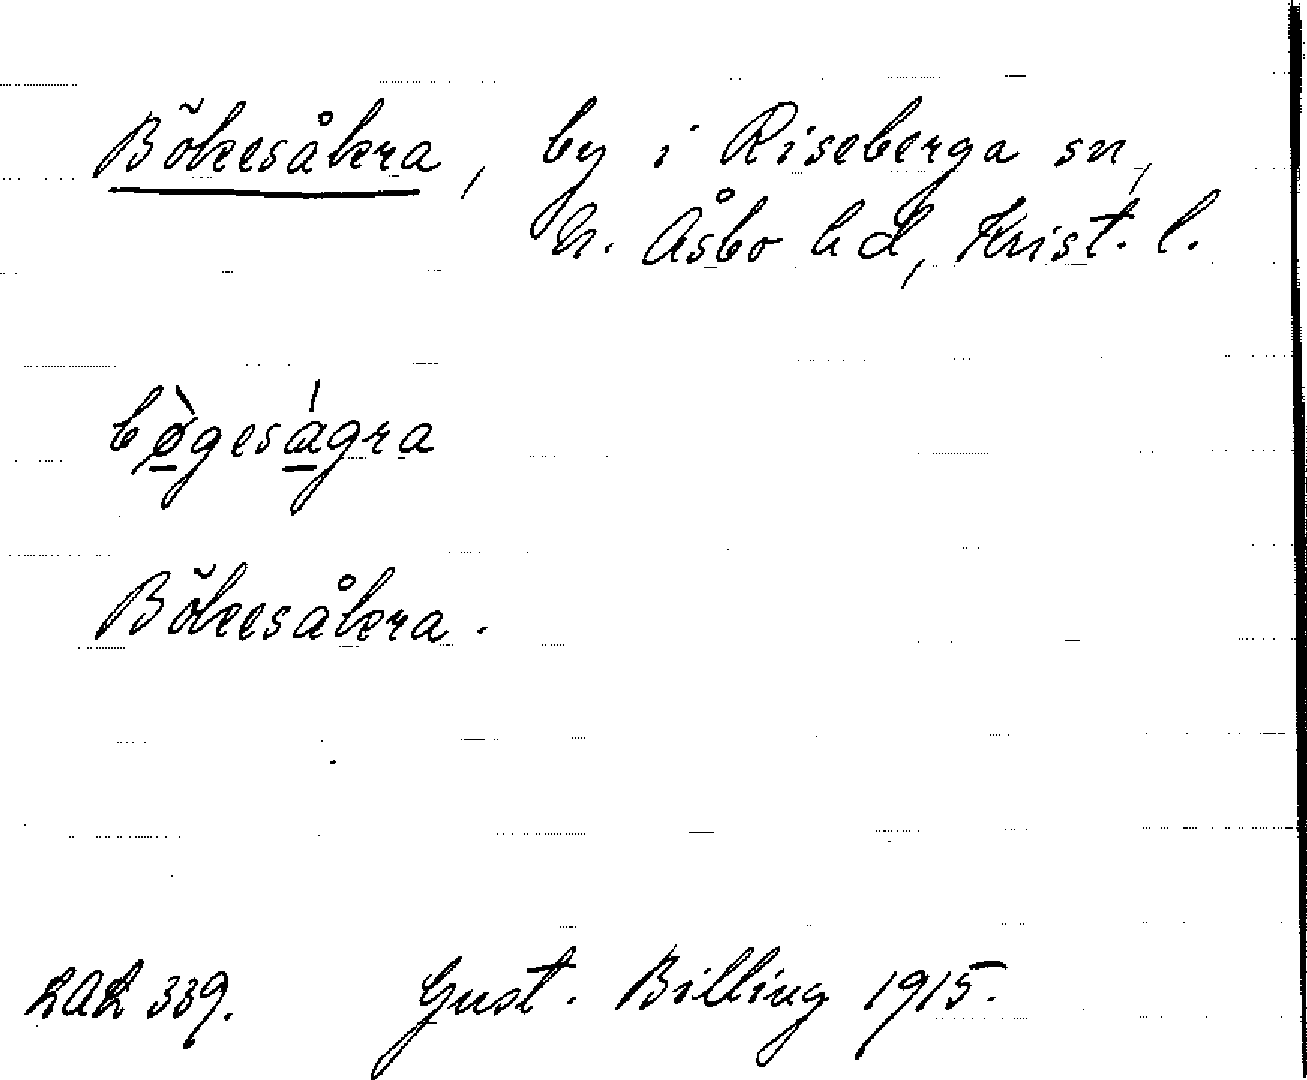 Bökesåkra, by i Riseberga sn,
N. Åsbo hd, Krist. l.
bø̠̀gesa̠̍gra
Bökesåkra.
LAL 339. Gust. Billing 1915.